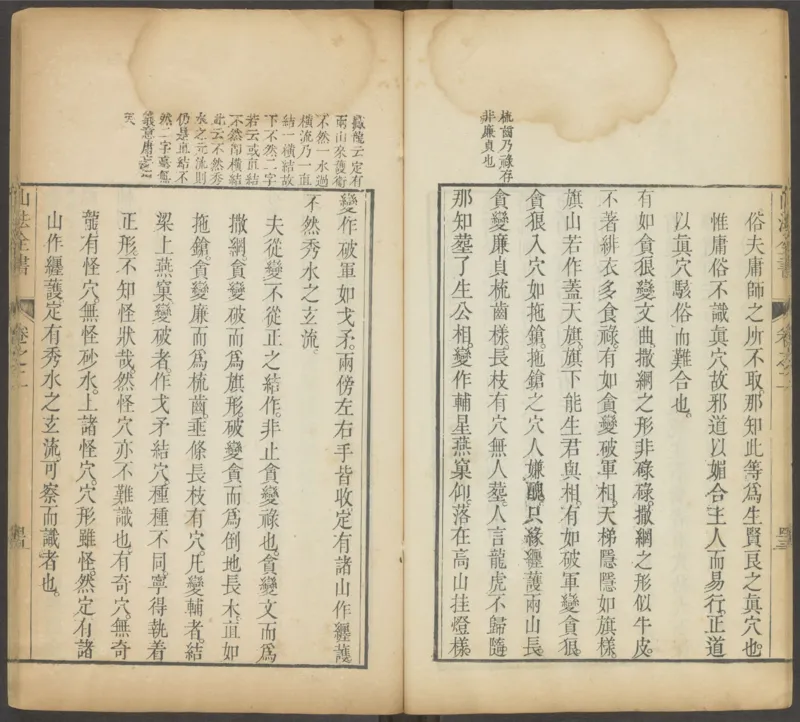 梳齒乃祿存
非廉貞也
俗夫庸師之所不取那知此等爲生賢良之眞穴也
惟庸俗不識眞穴故邪道以媚合主人而易行正道
以眞穴駭俗而難合也
有如貪狼變文曲撒網之形非碌碌撒網之形似牛皮
不著緋衣多食祿有如貪變破軍相天梯隱隱如旗樣
旗山若作蓋天旗旗下能生君與相有如破軍變貪狼
貪狼入穴如拖鎗拖鎗之穴人嫌醜只緣纒護兩山長
貪變廉貞梳齒樣長枝有穴無人塟人言龍虎不歸隨
那知塟了生公相變作輔星燕窠仰落在高山挂燈樣
嶽龍云定有
兩山來護衛
不然一水過
橫流乃一直
結一橫結故
下不然二字
若云或直結
不然卽橫結
此云不然秀
水之元流則
仍是直結不
然二字毫無
矣
變作破軍如戈矛兩傍左右手皆收定有諸山作纒護
不然秀水之玄流
夫從變不從正之結作非止貪變祿也貪變文而爲
撒網貪變破而爲旗形破變貪而爲倒地長木直如
拖鎗貪變廉而爲梳齒垂條長枝有穴凡變輔者結
梁上燕窠變破者作戈矛結穴種種不同寧得執着
正形不知怪狀哉然怪穴亦不難識也有奇穴無奇
龍有怪穴無怪砂水上諸怪穴穴形雖怪然定有諸
山作纒護定有秀水之玄流可察而識者也
卷之二